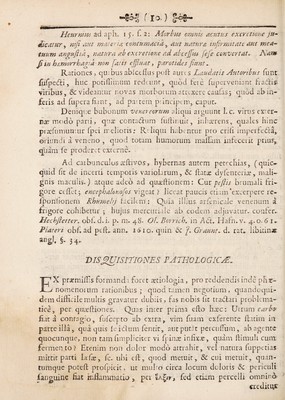 ( 10. )
Heurnius ad aph. 15. s. 2: Morbus omnis acutus excretione ju-
dicatur, nisi aut materia contumacia, aut natura infirmitate aut mea-
tuum angustia, natura ab excretione ad abscessus sese convertat. Nam
si in hæmorrhagia non satis effluat, parotides fiunt.
Rationes, quibus abscessus post aures Laudatis Autoribus sunt
suspecti, hinc potissimum redeunt, quod ferè superveniant fractis
viribus, & videantur novas morborum arcessere causas; quod ab in-
feris ad supera fiant, ad partem principem, caput.
Denique bubonum venereorum aliqua arguunt l.c. virus exter-
næ modò parti, quæ contactum sustinuit, inhærens, qualis hinc
præsumimus spei melioris: Reliqui habentur pro crisi imperfecta,
oriundi à veneno, quod totam humorum massam infecerit prius,
quàm se proderet externè.
Ad carbunculos æstivos, hybernas autem petechias, (quic-
quid sit de incerti temporis variolarum, & statæ dysenteriæ, mali-
gnis maculis.) atque adeò ad quæstionem: Cur pestis brumali fri-
gore cesset; encephalonosus vigeat? liceat paucis etiam excerpere re-
sponsionem Rhumelij facilem: Quia illius arsenicale venenum à
frigore cohibetur; hujus mercuriale ab eodem adjuvatur. confer.
Hechstetter. obf. d. 1. p. m. 48. Ol. Borrich. in Act. Hafn. v. 4. o. 61.
Plateri obf. ad pest. ann. 1610. quin & J. Graunt. d. rat. ibitinæ
angl. §. 34.
DISQUISITIONES PATHOLOGICÆ.
EX præmissis formandi foret ætiologia, pro reddendis inde phæ-
nomenorum rationibus; quod tamen negotium, quandoqui-
dem difficile multis gravatur dubiis, fas nobis sit tractari problema-
ticè, per quæstiones. Quas inter prima esto hæc: Utrum carbo
fiat à contagio, suscepto ab extra, vim suam exserente statim in
parte illa, quâ quis se ictum sentit, aut putat percussum, ab agente
quocunque, non tam simpliciter vi spinæ infixæ, quàm stimuli cum
fermento? Etenim non dolor modò attrahit, vel natura suppetias
mittit parti læsæ, sc. ubi est, quod metuit, & cui metuit, quan-
tumque potest prospicit. ut multo circa locum doloris & periculi
sanguine fiat inflammatio, per ἕλξιν, sed etiam percelli omnino
creditur